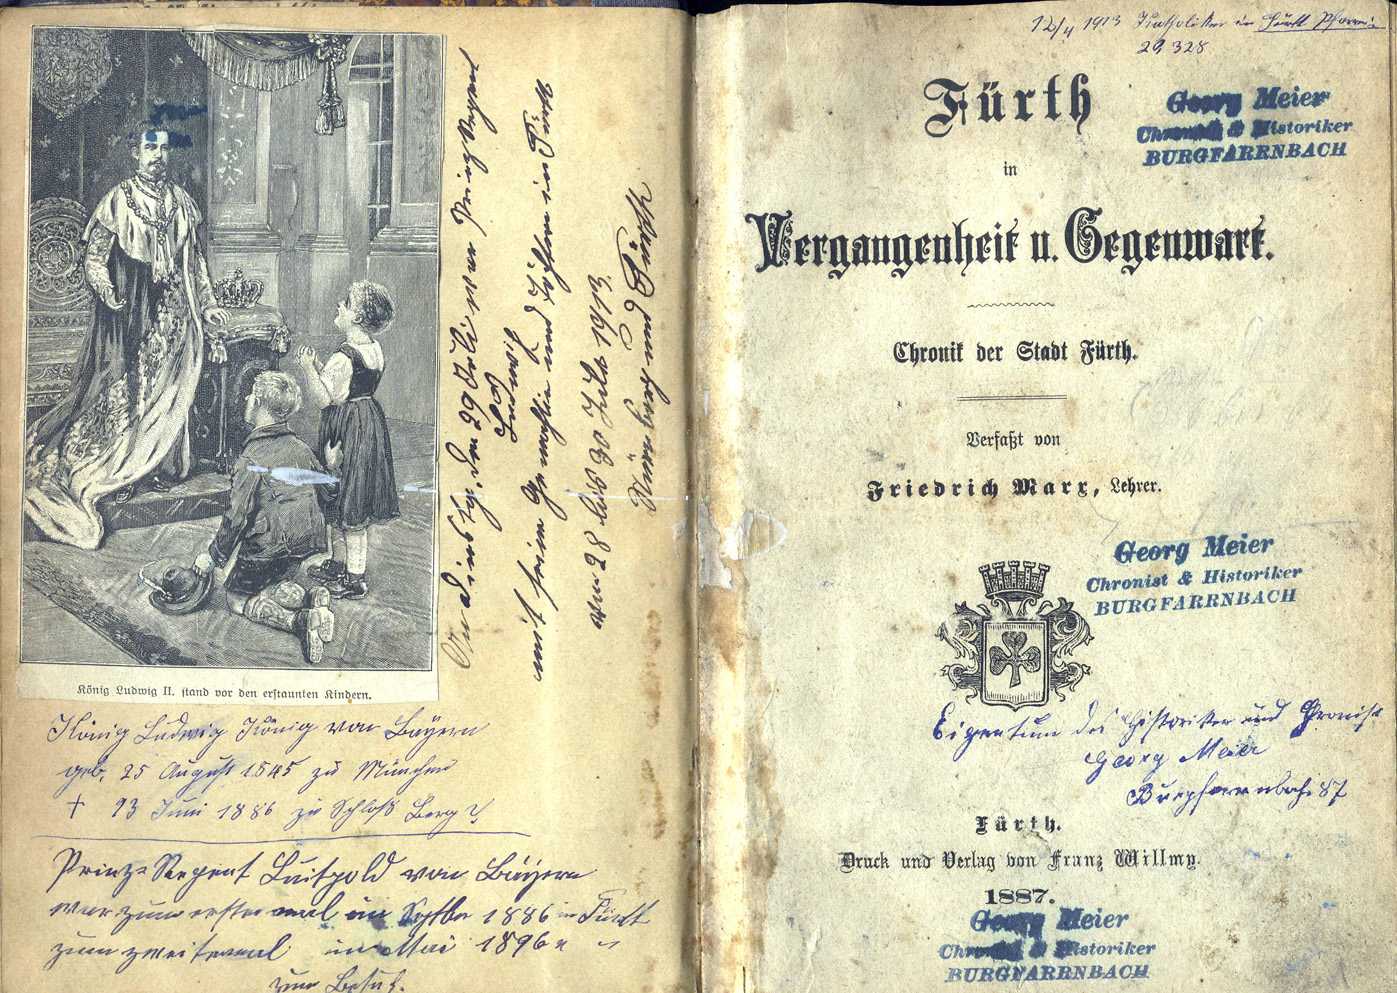 König Ludwig II. stand vor den erstaunten Kindern.
König Ludwig König von Bayern
geb. 25 August 1845 zu München
† 13 Juni 1886 zu Schloß Berg
Prinz-Regent Luitpold von Bayern
war zum erstenmal im Septbr 1886 in Fürth
zum zweitenmal im Mai 1896
zum Besuch.
29 Juli war Prinz Regent
Ludwig
mit seiner Gemahlin und Töchtern in Fürth
vom 28 bis 30 Juli 1913
Nürnberg und Fürth
12/4 1913 Katholiken in Fürth
29 328
Fürth
in
Vergangenheit u. Gegenwart.
Chronik der Stadt Fürth.
Verfaßt von
Friedrich Marx, Lehrer.
Georg Meier
Chronist & Historiker
BURGFARRNBACH
Georg Meier
Chronist & Historiker
BURGFARRNBACH
Eigentum des Historiker und Chronist
Georg Meier
Burgfarrnbach 87
Fürth.
Druck und Verlag von Franz Willmy.
1887.
Georg Meier
Chronist & Historiker
BURGFARRNBACH